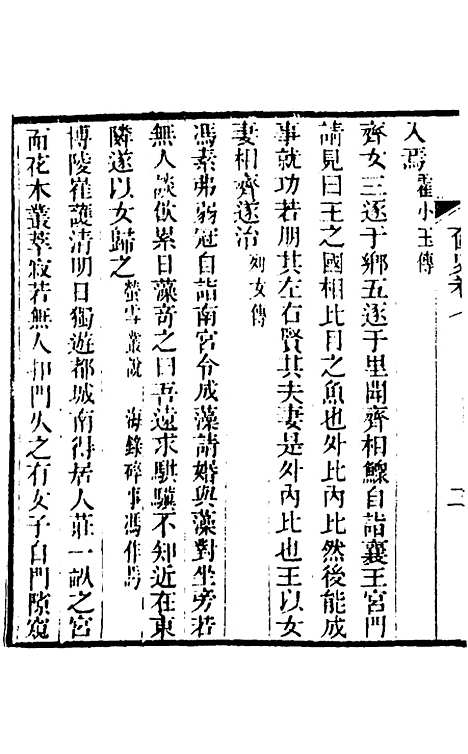 入焉霍小玉傳
齊女三逐于鄉五逐于里聞齊相鰥自詣襄王宮門
請見曰王之國相比目之魚也外比內比然後能成
事就功若朋其左右賢其夫妻是外內比也王以女
妻相齊遂治列女傳
馮素弗弱冠自詣南宮令成藻請婚與藻對坐旁若
無人談飲累日藻奇之曰吾遠求騏驥不知近在東
隣遂以女歸之螢雪叢說 海錄碎事馮作馬
博陵崔護清明日獨遊都城南得居人莊一畝之宮
而花木叢萃寂若無人扣門久之有女子自門隙窺